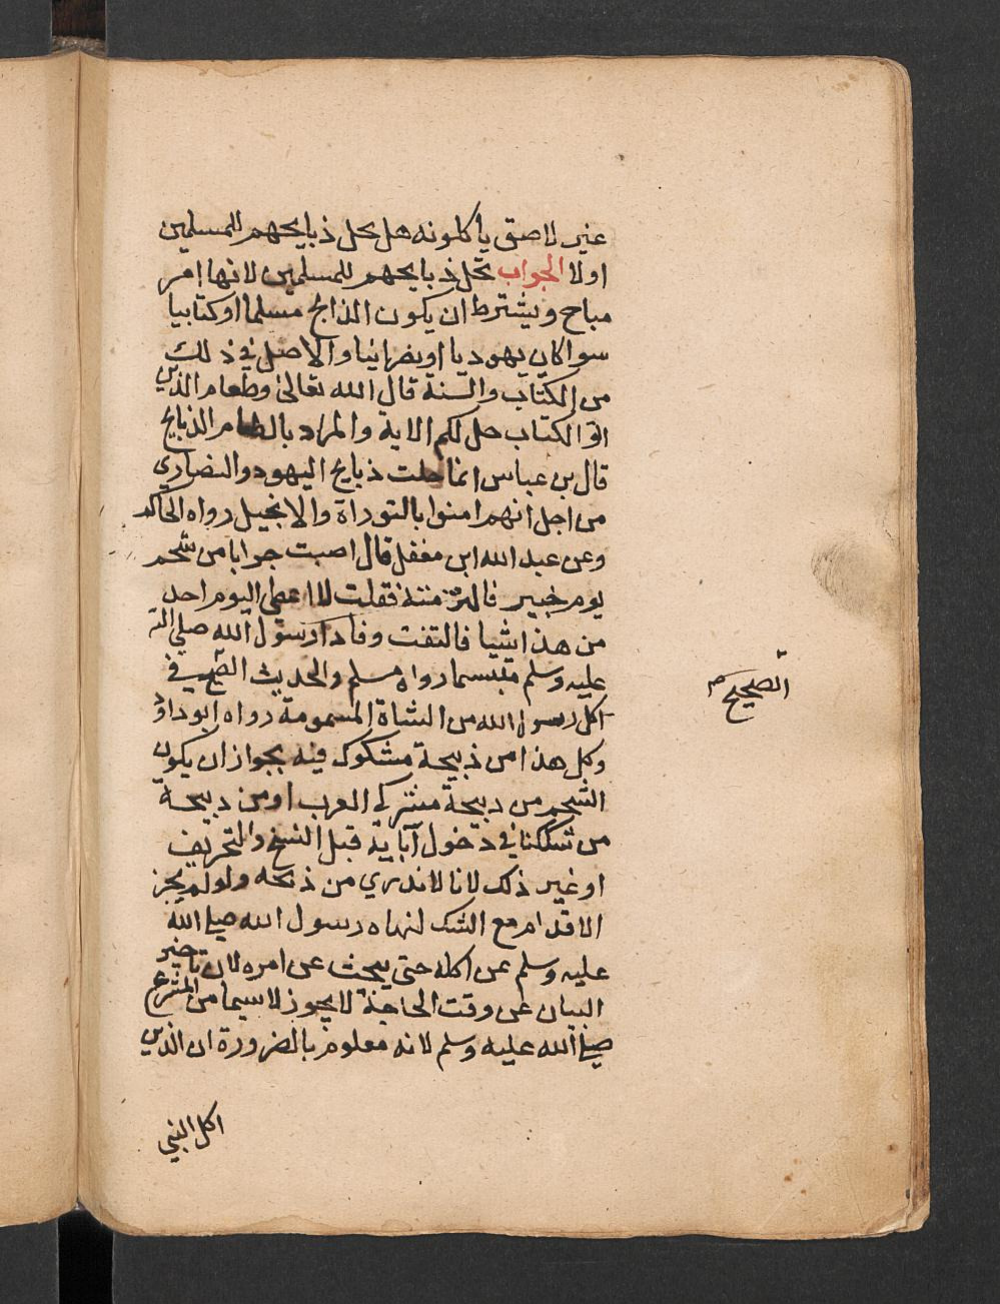 غير لاصق ياكلونه هل تحل ذبايحهم للمسلمين
اولا الجواب تحل ذبايحهم للمسلمين لانها امر
مباح ويشترط ان يكون الذابح مسلما اوكتابيا
سواكان يهوديا اونضرانيا والاصل في ذلك
من الكتاب والسنة قال الله تعالى وطعام الذين
اتو الكتاب حل لكم الاية والمراد بالطعام الذبايح
قال بن عباس انما حلت ذبايح اليهود والنضاري
من اجل انهم امنوا بالتوراة والانجيل رواه الحاكم
وعن عبد الله ابن مغفل قال اصبت جرابا من شحم
يوم خيبر فقلت لا اعطي اليوم احد
من هذا شيا فالتفت وفاذا رسول الله صلى الله
عليه وسلم متبسما رواه مسلم والحديث الصحيح في
اكل رسول الله من الشاة المسمومة رواه ابوداؤ
وكل هذا من ذبيحة مشكوك فيه بجواز ان يكون
الشحم من دبيحة مشركي العرب اومن دبيحة
من شككنا في دخول آبايه قبل النسخ والتحريف
اوغير ذلك لانا لاندري من ذبحه ولولم يجز
الاقدام مع الشك لنهاه رسول الله صلى الله
عليه وسلم عن اكله حتى يبحث عن امره لان تاخير
البيان عن وقت الحاجة لايجوز لاسيما من المشرع
صلى الله عليه وسلم لانه معلوم بالضرورة ان الذين
اكل النبي
الصحيح م